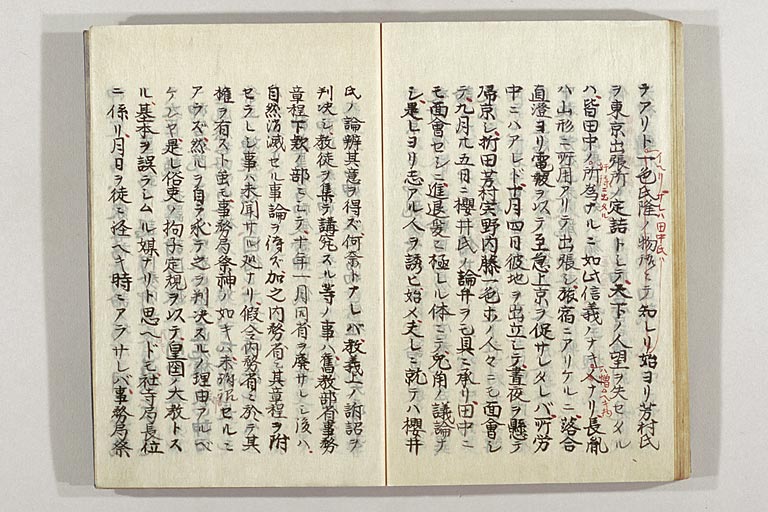 ヲアリト一色氏隆ノ物語ニテ知レリ始ヨリ芳村氏
ヲ東京出張所ノ定詰トシテ天下ノ人望ヲ失セメル
ハ皆田中ノ所為ナルニ如此信義ノナキ人ナリ長胤
ハ山形ニ所用アリテ出張シ旅宿ニアリケルニ落合
直澄ヨリ電報ヲ以テ至急上京ヲ促サレタレバ所労
中ニハアレド十月四日彼地ヲ出立シテ昼夜ヲ懸テ
帰京シ折田芳村実野内藤一色等ノ人々ニモ面会シ
テ九月廿五日ニ櫻井氏ノ論弁ヲモ具ニ承リ田中ニ
モ面會セシニ進退爰ニ極レル体ニテ兎角ノ議論ナ
シ是レヨリ志アル人ヲ誘ヒ始メ夫レニ就テハ櫻井
氏ノ論辨其意ヲ得ズ何奈トナレバ教義上ノ訥訟ヲ
判决シ教徒ヲ集テ講究スル等ノ事ハ舊教部省事務
章程下款ノ部ニシテ十年一月同省ヲ廃サレシ後ハ
自然消滅セル事論ヲ俟ズ加之内務省ニ其章程ヲ附
セラレシ事ハ未聞サル処ナリ假令内務省ニ於テ其
權ヲ有スト虽モ事務局祭神ノ如キハ未 セルニ
アラズ然ルヲ自ラ求テ之ヲ判决スルノ理由アルベ
ケンヤ是レ俗吏ノ拘子定規ヲ以テ皇国ノ大教トス
ル基本ヲ誤ラシムル媒ナリト思ヘドモ社寺局長位
ニ係リ月日ヲ徒ニ送ベキ時ニアラサレバ事務局祭